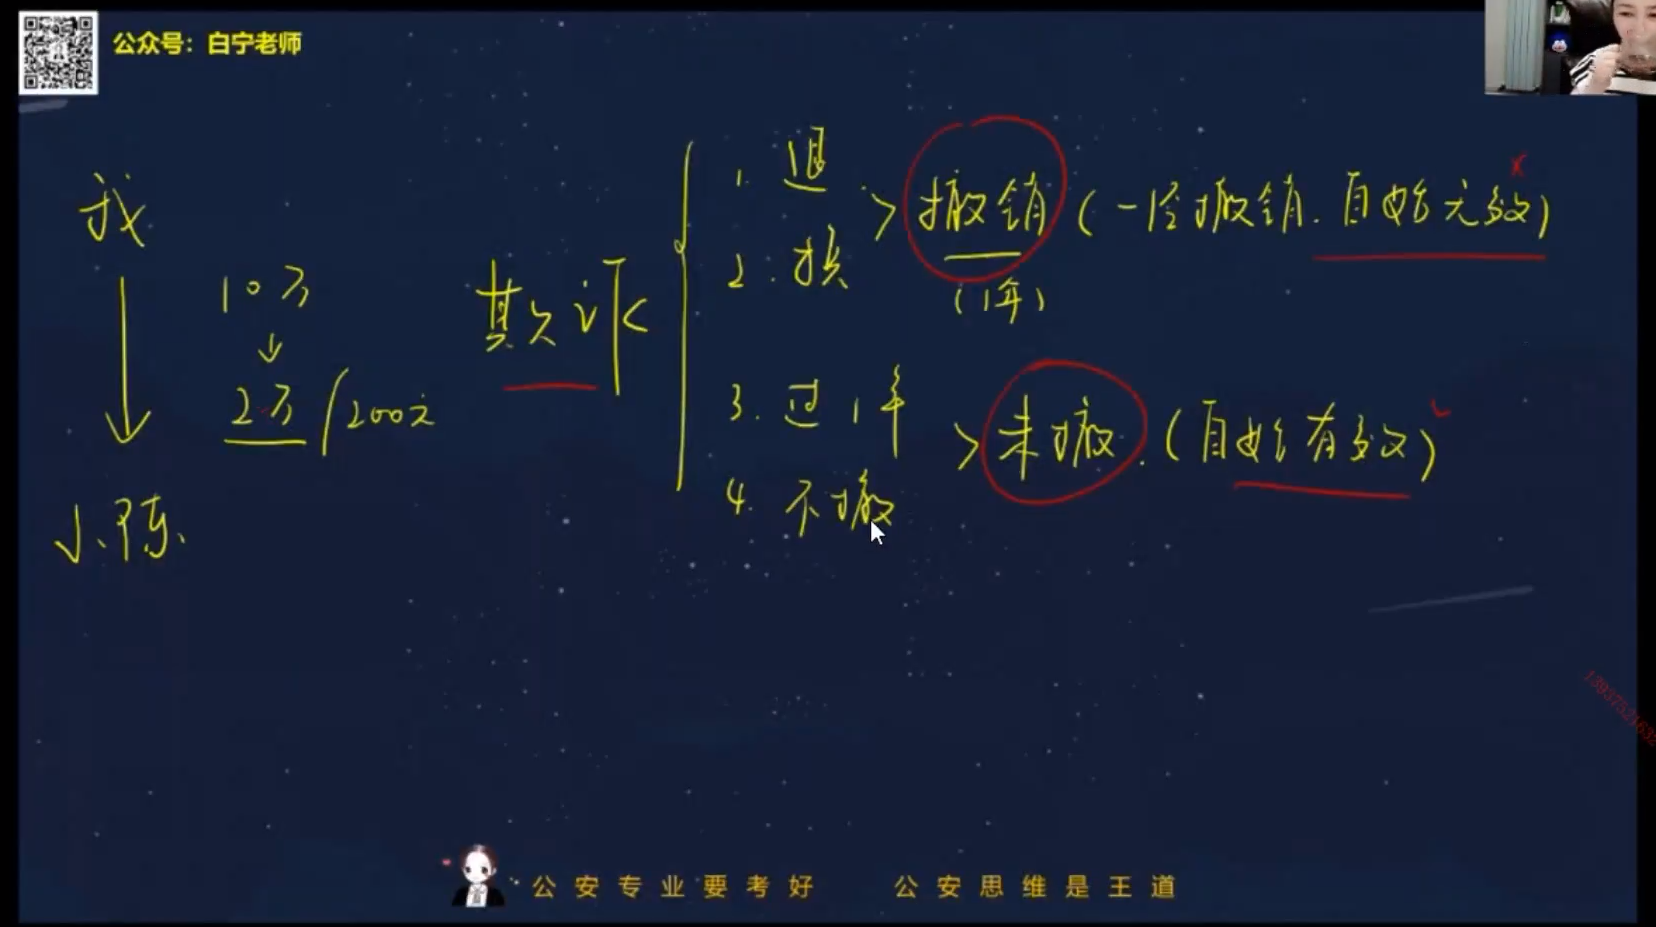 公众号：白宁老师
我
10万
2万/200元
小陈
欺诈
1. 退
2. 换
>撤销(一经撤销.自始无效)
×
(1年)
3. 过1年
4. 不撤
>未撤.(自始有效)
公安专业要考好 公安思维是王道